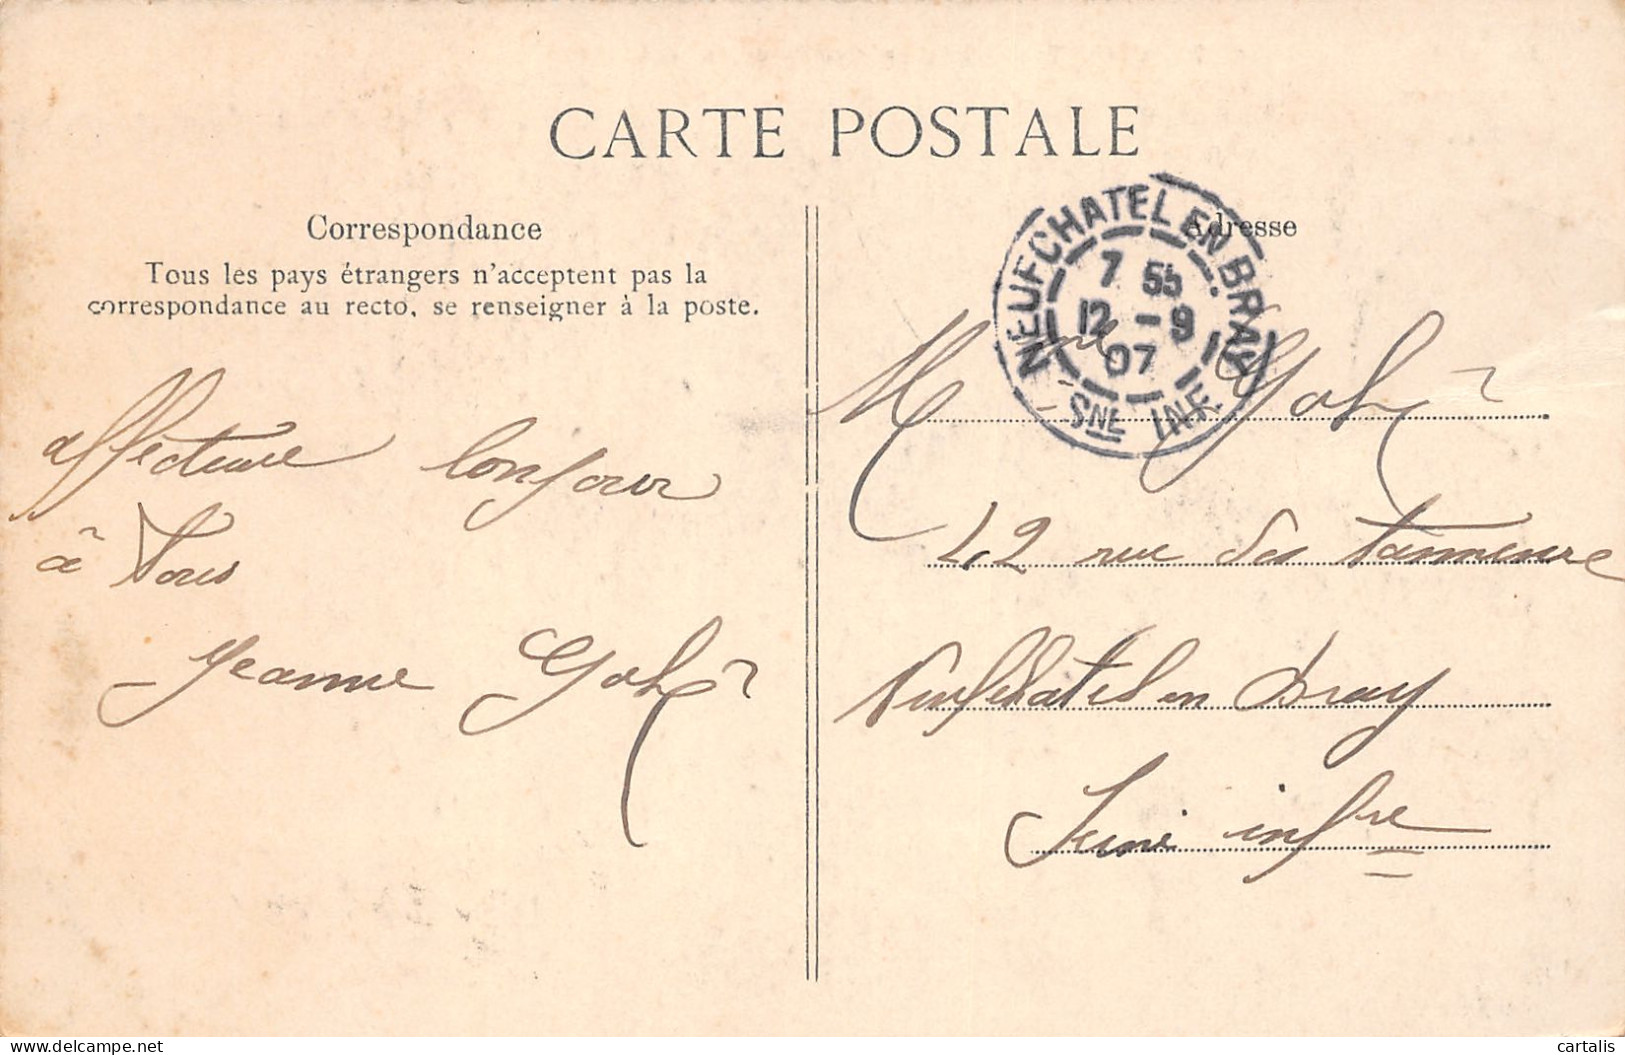 CARTE POSTALE
Correspondance
Tous les pays étrangers n'acceptent pas la
correspondance au recto, se renseigner à la poste.
affectueux bonjour
à tous
Jeanne
Adresse
NEUFCHATEL EN BRAY
7 55
12 - 9
07
SNE INF.
Mme
42 rue des tanneurs
Neufchatel en Bray
Seine infre
delcampe.net
cartalis